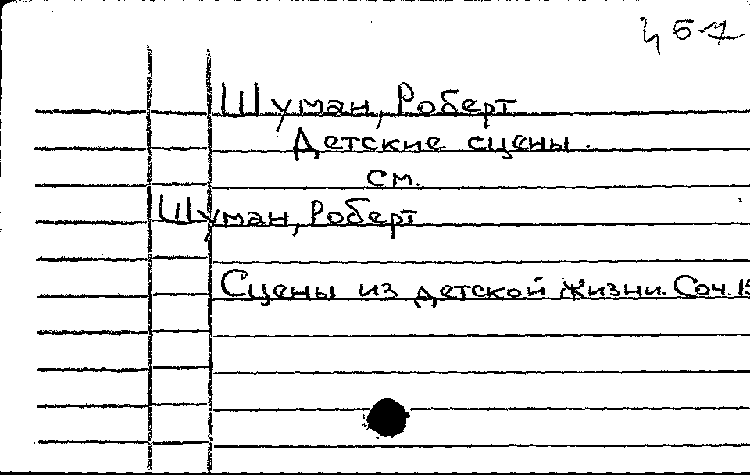 Шуман, Роберт
Детские сцены.
см.
Шуман, Роберт
Сцены из детской жизни. Соч. 15